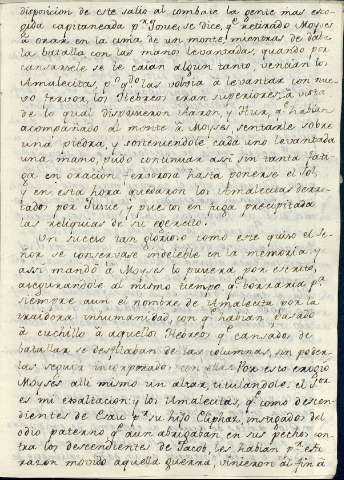 disposicion de este salió al combate la gente mas esco-
gida capitaneada pr. Josue, se dice, qe. retirado Moyses
à orar en la cima de un monte mientras se daba
la batalla con las manos levantadas, quando por
cansarsele se le caían algun tanto vencían los
Amalecitas, pº. qdo. las volvia à levantar con nue-
vo fervor, los Hebreos eran superiores; à vista
de lo qual dispusieron Aaron, y Hur, qe. habian
acompañado al monte à Moyses, sentarle sobre
una piedra, y sosteniendole cada uno levantada
una mano, pudo continuar assi sin tanta fati-
ga en oracion fervorosa hasta ponerse el Sol,
y en esta hora quedaron los Amalecitas derro-
tados por Josue, y puestos en fuga precipitada
las reliquias de su egercito.
Un suceso tan glorioso como este quiso el Se-
ñor se conservase indeleble en la memoria, y
assi mandó à Moyses lo pusiera por escrito,
asegurandole al mismo tiempo qe. borraria pa.
siempre aun el nombre de Amalecita por la
traidora inhumanidad, con qe. habian pasado
à cuchillo à aquellos Hebreos qe. cansados de
batallar se desfilaban de las columnas, sin poder-
las seguir incorporados con ellas. Por esto erigió
Moyses alli mismo un altar, titulandole: el Sor.
es mi exaltacion: y los Amalecitas, qe. como descen-
dientes de Esau pr. su hijo Eliphaz, instigados del
odio paterno qe. aun abrigaban en sus pechos con-
tra los descendientes de Jacob, les habian pr. esta
razon movido aquella guerra, vinieron al fin à